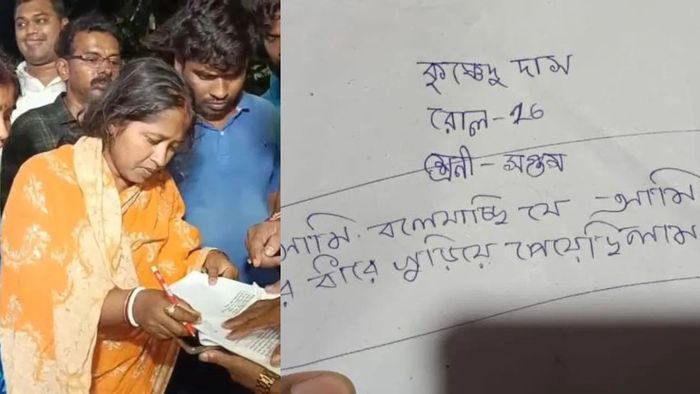 কৃষ্ণেন্দু দাস
রোল-16
শ্রেনী - সপ্তম
আমি বলেযাচ্ছি যে - আমি
র ধীরে খুড়িয়ে পেয়েছিলাম